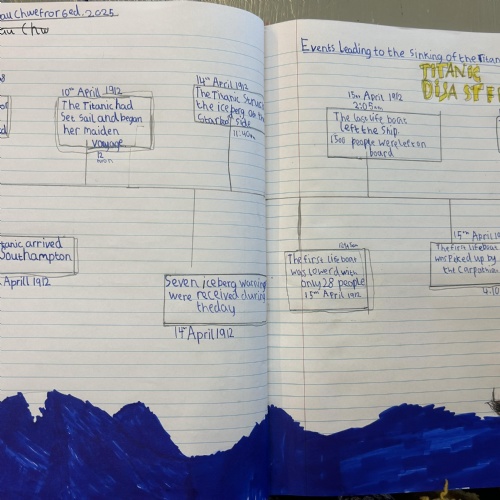 Chwefror Ged. 2025
Chw
10th April 1912
The Titanic had
set sail and began
her maiden
voyage
12
noon
14th April 1912
The Titanic Struck
the iceberg on the
Starbord side
11:40pm
anic arrived
Southampton
April 1912
Seven iceberg warning
were received during
the day
14th April 1912
Events Leading to the sinking of the Titan
TITANIC
DISASTE
15th April 1912
2:05am
The last life boat
left the ship.
1500 people were left on
board
12:45am
The first life boat
was lowerd with
only 28 people
15th April 1912
15th April 19
The first lifeboat
was picked up by
the Carpathia
4:10